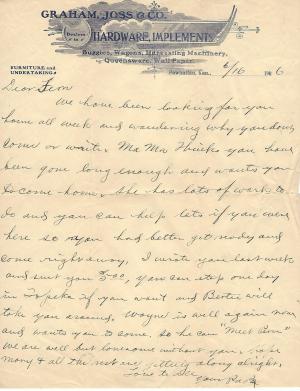 GRAHAM, JOSS & CO.
Dealers in
HARDWARE, IMPLEMENTS
Buggies, Wagons, Harvesting Machinery,
Queensware, Wall Paper.
FURNITURE and
UNDERTAKING
Powhattan, Kan., 6/16 1906
Dear Fern
We have been looking for you
home all week and wondering why you dont
come or write. Ma Ma thinks you have
been gone long enough and wants you
to come home. She has lots of work to
do and you can help lots if you were
here so you had better get ready and
come right away, I wrote you last week
and sent you 5.00, you can stop one day
in Topeka if you want and Bertie will
take you around. Wayne is well again now
and wants you to come, so he can "Meet
We are well but lonesome without you,
& all the rest are getting along alright,
Love to all
your Papa